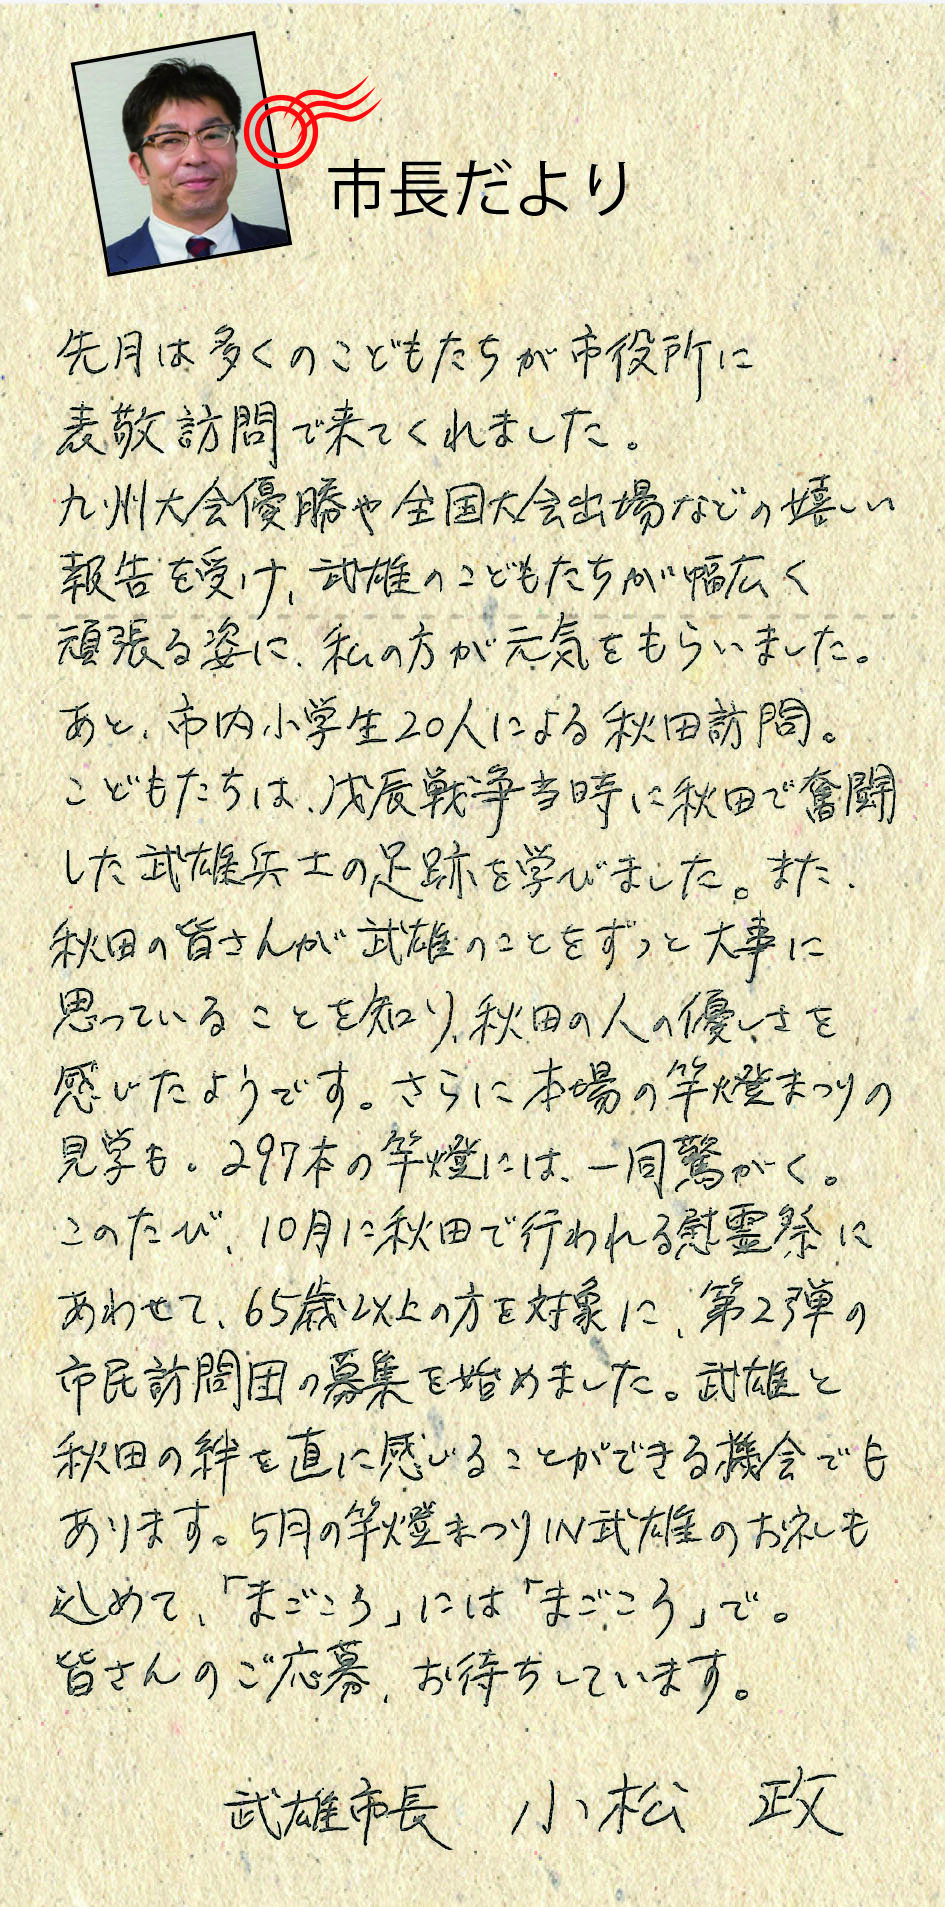 市長だより
先月は多くのこどもたちが市役所に
表敬訪問で来てくれました。
九州大会優勝や全国大会出場などの嬉しい
報告を受け、武雄のこどもたちが幅広く
頑張る姿に、私の方が元気をもらいました。
あと、市内小学生20人による秋田訪問。
こどもたちは、戊辰戦争当時に秋田で奮闘
した武雄兵士の足跡を学びました。また、
秋田の皆さんが武雄のことをずっと大事に
思っていることを知り、秋田の人の優しさを
感じたようです。さらに本場の竿燈まつりの
見学も。297本の竿燈には、一同驚がく。
このたび、10月に秋田で行われる慰霊祭に
あわせて、65歳以上の方を対象に、第2弾の
市民訪問団の募集を始めました。武雄と
秋田の絆を直に感じることができる機会でも
あります。5月の竿燈まつりIN武雄のお礼も
込めて、「まごころ」には「まごころ」で。
皆さんのご応募、お待ちしています。
武雄市長 小松 政